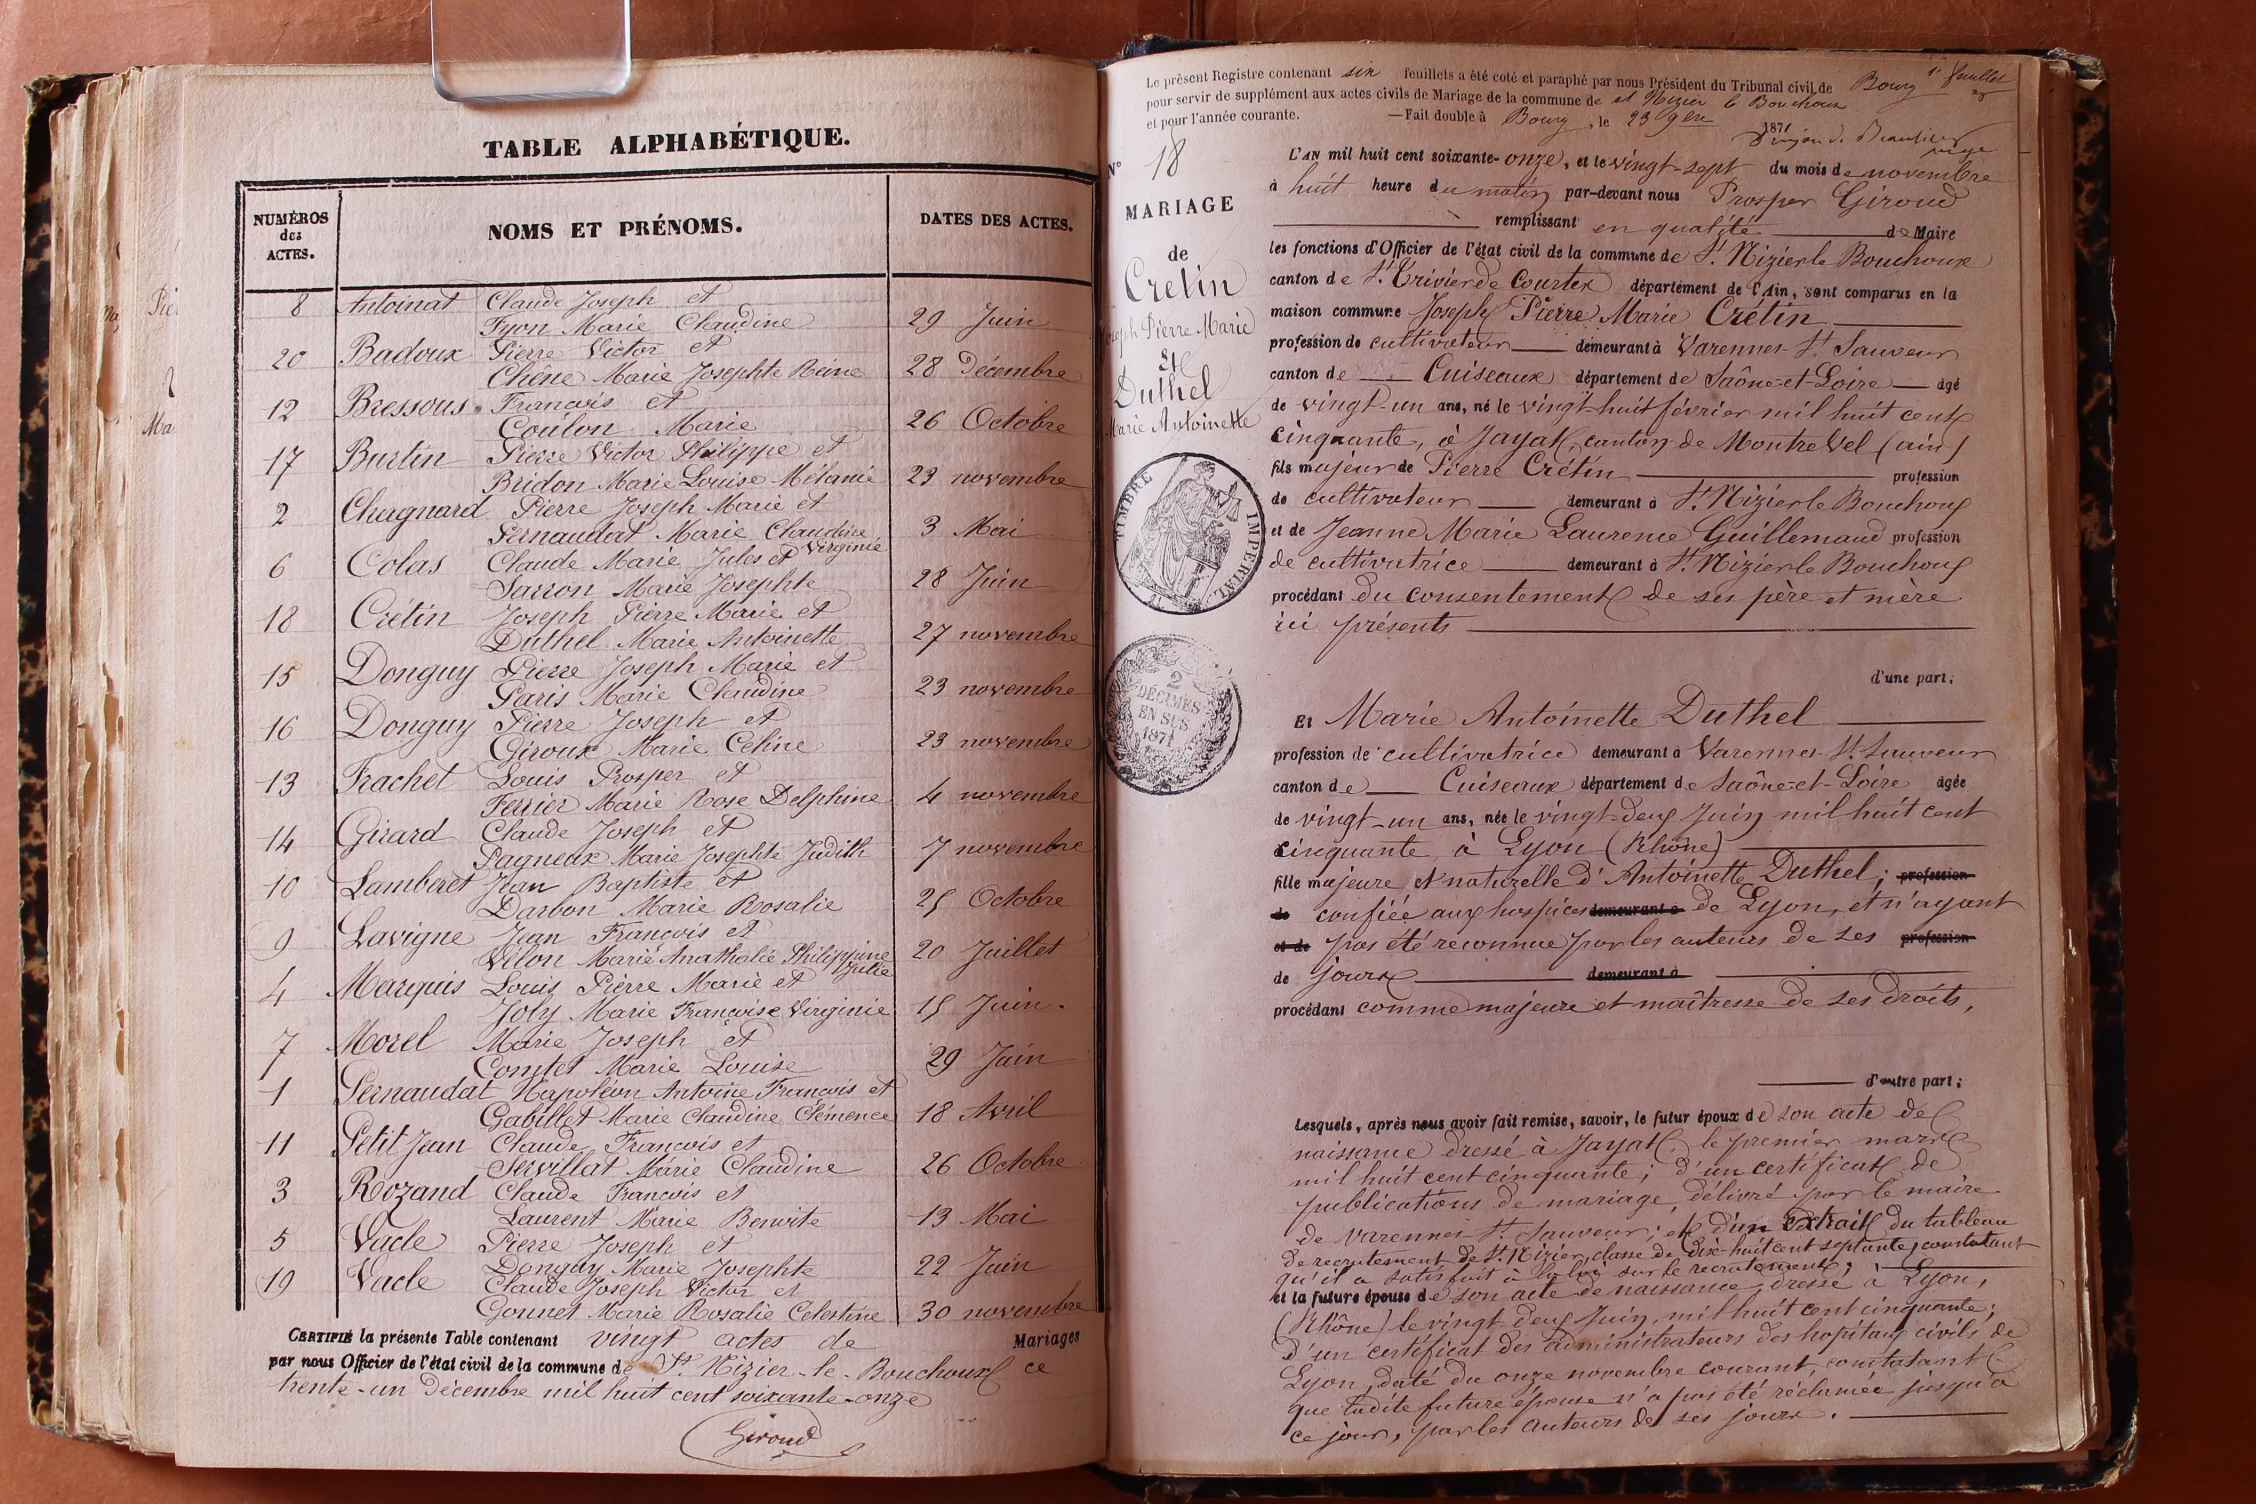 TABLE ALPHABÉTIQUE.
NUMÉROS des ACTES.
NOMS ET PRÉNOMS.
DATES DES ACTES.
8 Antoinat Claude Joseph et
Fyon Marie Claudine 29 Juin
20 Badoux Pierre Victor et
Chêne Marie Josephte Reine 28 Décembre
12 Bressous François et
Coulon Marie 26 Octobre
17 Burtin Pierre Victor Philippe et
Bridon Marie Louise Mélanie 23 novembre
2 Chagnard Pierre Joseph Marie et
Pernaudat Marie Claudine Virginie 3 Mai
6 Colas Claude Marie Jules et
Sarron Marie Josephte 28 Juin
18 Crétin Joseph Pierre Marie et
Duthel Marie Antoinette 27 novembre
15 Donguy Pierre Joseph Marie et
Paris Marie Claudine 23 novembre
16 Donguy Pierre Joseph et
Giroux Marie Celine 23 novembre
13 Frachet Louis Prosper et
Ferrier Marie Rose Delphine 4 novembre
14 Girard Claude Joseph et
Pagneux Marie Josephte Judith 7 novembre
10 Lamberet Jean Baptiste et
Darbon Marie Rosalie 25 Octobre
9 Lavigne Jean François et
Vélon Marie Anathalie Philippine Julie 20 Juillet
4 Marquis Louis Pierre Marie et
Joly Marie Françoise Virginie 15 Juin.
7 Morel Marie Joseph et
Comtet Marie Louise 29 Juin
1 Pernaudat Napoléon Antoine François et
Gabillet Marie Claudine Clémence 18 Avril
11 Petit Jean Claude François et
Servillat Marie Claudine 26 Octobre
3 Rozand Claude François et
Laurent Marie Benoite 13 Mai
5 Vacle Pierre Joseph et
Donguy Marie Josephte 22 Juin
19 Vacle Claude Joseph Victor et
Gonnet Marie Rosalie Celestine 30 novembre
CERTIFIÉ la présente Table contenant vingt actes de Mariages
par nous Officier de l'état civil de la commune de St. Nizier-le-Bouchoux ce
trente-un Décembre mil huit cent soixante-onze
Giroud
Le présent Registre contenant six feuillets a été coté et paraphé par nous Président du Tribunal civil de Bourg 1er feuillet
pour servir de supplément aux actes civils de Mariage de la commune de st Nizier le Bouchoux
et pour l'année courante. —Fait double à Bourg, le 23 9bre 1871
N° 18
MARIAGE
de
Cretin
Joseph Pierre Marie
Et
Duthel
Marie Antoinette
TIMBRE IMPERIAL
2
DÉCIMES
EN SUS
1871
L'AN mil huit cent soixante-onze, et le vingt-sept du mois de novembre
à huit heure du matin par-devant nous Prosper Giroud
remplissant en qualité de Maire
les fonctions d'Officier de l'état civil de la commune de St. Nizier le Bouchoux
canton de St. Trivier de Courtex département de l'Ain, sont comparus en la
maison commune Joseph Pierre Marie Crétin
profession de cultivateur demeurant à Varennes-St. Sauveur
canton de Cuiseaux département de Saône-et-Loire âgé
de vingt-un ans, né le vingt-huit février mil huit cent
cinquante, à Jayat, canton de Montrevel (ain)
fils majeur de Pierre Crétin profession
de cultivateur demeurant à St. Nizier le Bouchoux
et de Jeanne Marie Laurence Guillemaud profession
de cultivatrice demeurant à St. Nizier le Bouchoux
procédant du consentement de ses père et mère
ici présents
d'une part;
Et Marie Antoinette Duthel
profession de cultivatrice demeurant à Varennes-St. Sauveur
canton de Cuiseaux département de Saône-et-Loire âgée
de vingt-un ans, née le vingt-deux Juin mil huit cent
cinquante à Lyon (Rhône)
fille majeure et naturelle d'Antoinette Duthel; profession
de confiée aux hospices demeurant à de Lyon, et n'ayant
et de pas été reconnue par les auteurs de ses profession
de jours demeurant à
procédant comme majeure et maîtresse de ses droits,
d'autre part;
Lesquels, après nous avoir fait remise, savoir, le futur époux de son acte de
naissance dressé à Jayat, le premier mars
mil huit cent cinquante; d'un certificat de
publications de mariage, délivré par le maire
de Varennes-St. Sauveur; et d'un Extrait du tableau
de recrutement de St. Nizier, classe de dix-huit cent septante, constatant
qu'il a satisfait à la loi sur le recrutement;
et la future épouse de son acte de naissance dressé à Lyon,
(Rhône) le vingt-deux Juin mil huit cent cinquante;
D'un certificat des administrateurs des hopitaux civils de
Lyon, daté du onze novembre courant, constatant
que ladite future épouse n'a pas été réclamée jusqu'à
ce jour, par les auteurs de ses jours.